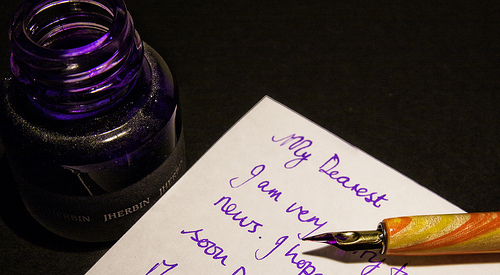 JHERBIN JHERBIN
My Dearest
I am very
news. I hope
soon